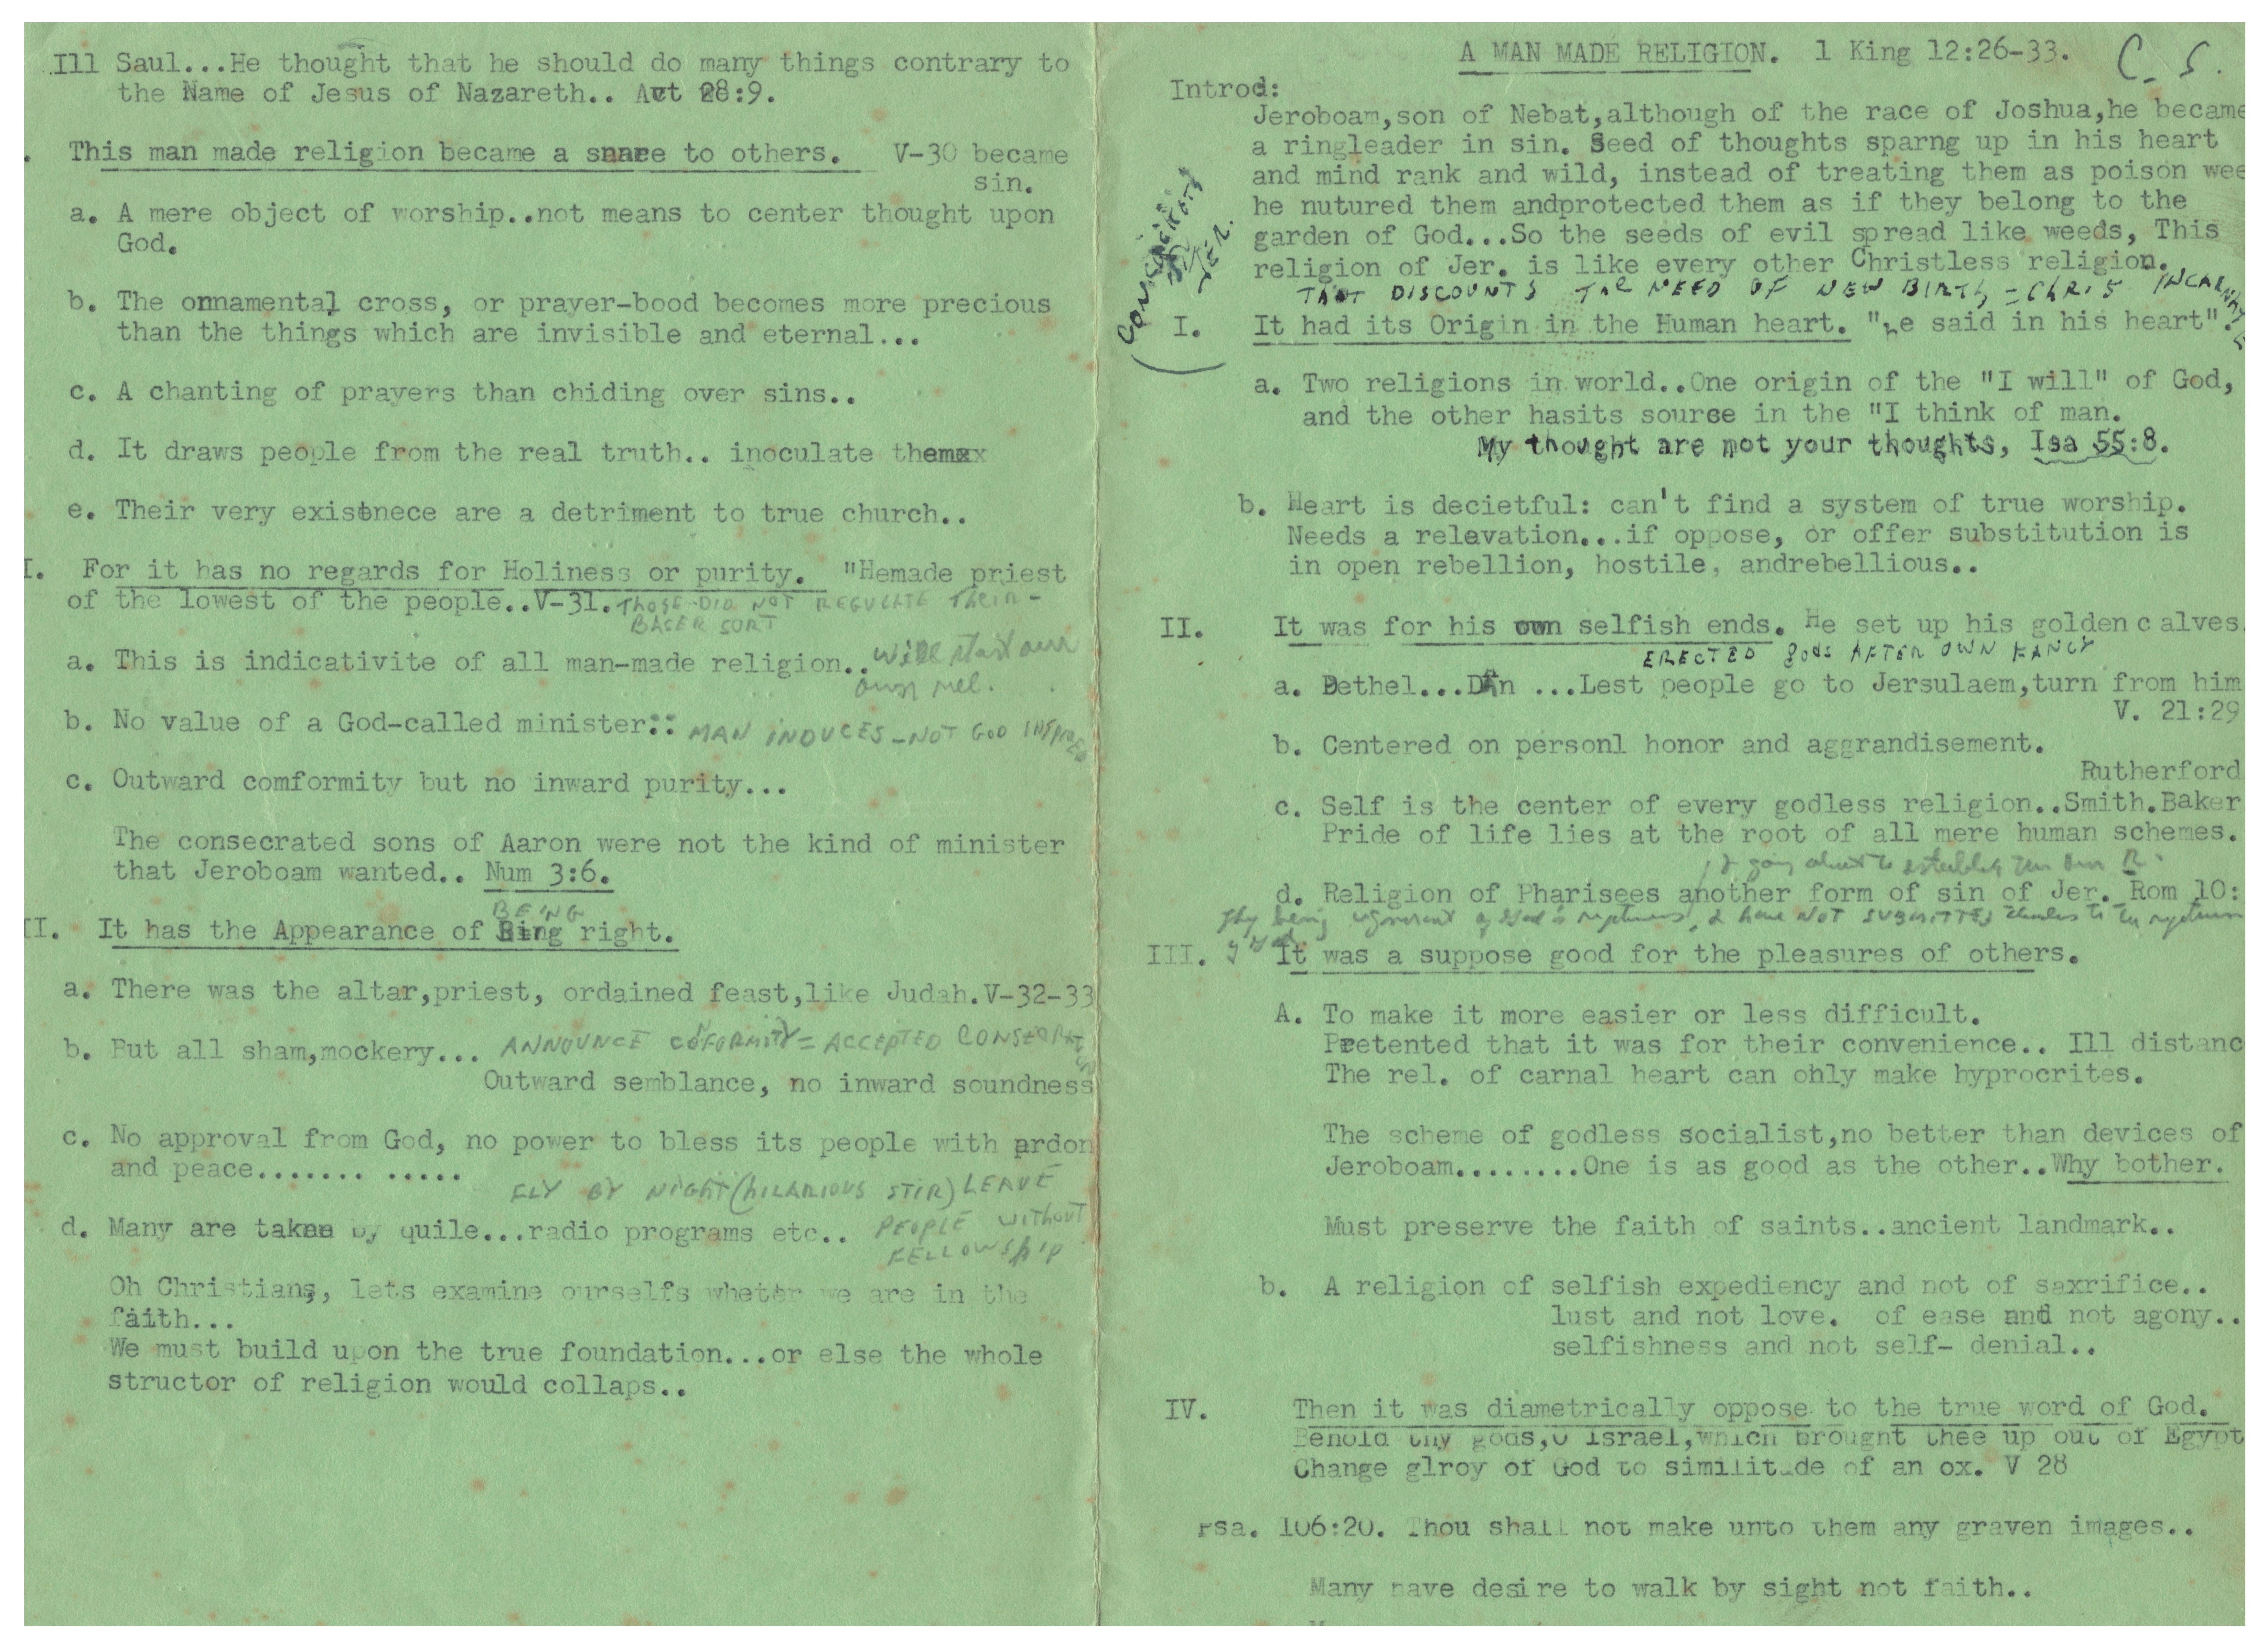 A MAN MADE RELIGION. 1 King 12:26-33. C. S.
Introd:
Jeroboam,son of Nebat,although of the race of Joshua,he became
a ringleader in sin. Seed of thoughts sparng up in his heart
and mind rank and wild, instead of treating them as poison wee
he nutured them andprotected them as if they belong to the
garden of God...So the seeds of evil spread like weeds, This
religion of Jer. is like every other Christless religion.
THAT DISCOUNTS THE NEED OF NEW BIRTH = CHRIS INCARNATE
I. It had its Origin in the Human heart. "he said in his heart".
a. Two religions in world..One origin of the "I will" of God,
and the other hasits source in the "I think of man.
My thought are not your thoughts, Isa 55:8.
b. Heart is decietful: can't find a system of true worship.
Needs a relevation...if oppose, or offer substitution is
in open rebellion, hostile, andrebellious..
II. It was for his own selfish ends. He set up his golden c alves.
ERECTED gods AFTER OWN FANCY
a. Bethel...Dan ...Lest people go to Jersulaem,turn from him
V. 21:29
b. Centered on personl honor and aggrandisement.
Rutherford
c. Self is the center of every godless religion..Smith.Baker
Pride of life lies at the root of all mere human schemes.
& going about to establish their own R.
d. Religion of Pharisees another form of sin of Jer. Rom 10:
They being ignorant of God's & have NOT SUBMITTED themselves to the
of God
III. It was a suppose good for the pleasures of others.
A. To make it more easier or less difficult.
Pretented that it was for their convenience.. Ill distanc
The rel. of carnal heart can ohly make hyprocrites.
The scheme of godless socialist,no better than devices of
Jeroboam........One is as good as the other..Why bother.
Must preserve the faith of saints..ancient landmark..
b. A religion of selfish expediency and not of saxrifice..
lust and not love. of ease and not agony..
selfishness and not self- denial..
IV. Then it was diametrically oppose to the true word of God.
Behold thy gods,O Israel,which brought thee up out of Egypt
Change glroy of God to similitude of an ox. V 28
Psa. 106:20. Thou shall not make unto them any graven images..
Many have desire to walk by sight not faith..
Ill Saul...He thought that he should do many things contrary to
the Name of Jesus of Nazareth.. Act 28:9.
. This man made religion became a snare to others. V-30 became
sin.
a. A mere object of worship..not means to center thought upon
God.
b. The onnamental cross, or prayer-bood becomes more precious
than the things which are invisible and eternal...
c. A chanting of prayers than chiding over sins..
d. It draws people from the real truth.. inoculate themxx
e. Their very existnece are a detriment to true church..
I. For it has no regards for Holiness or purity. "Hemade priest
of the lowest of the people..V-31. THOSE DID NOT REGULATE THEIR-
BASER SORT
a. This is indicativite of all man-made religion.. will start our
own rel.
b. No value of a God-called minister:: MAN INDUCES-NOT GOD INSPIRED
c. Outward comformity but no inward purity...
The consecrated sons of Aaron were not the kind of minister
that Jeroboam wanted.. Num 3:6.
BEING
II. It has the Appearance of Bing right.
a. There was the altar,priest, ordained feast,like Judah.V-32-33
b. But all sham,mockery... ANNOUNCE COFORMITY = ACCEPTED
Outward semblance, no inward soundness
c. No approval from God, no power to bless its people with ardon
and peace....... .....
FLY BY NIGHT (HILARIOUS STIR) LEAVE
d. Many are taken by quile...radio programs etc.. PEOPLE WITHOUT
FELLOWSHIP
Oh Christians, lets examine ourselfs wheter we are in the
faith...
We must build upon the true foundation...or else the whole
structor of religion would collaps..